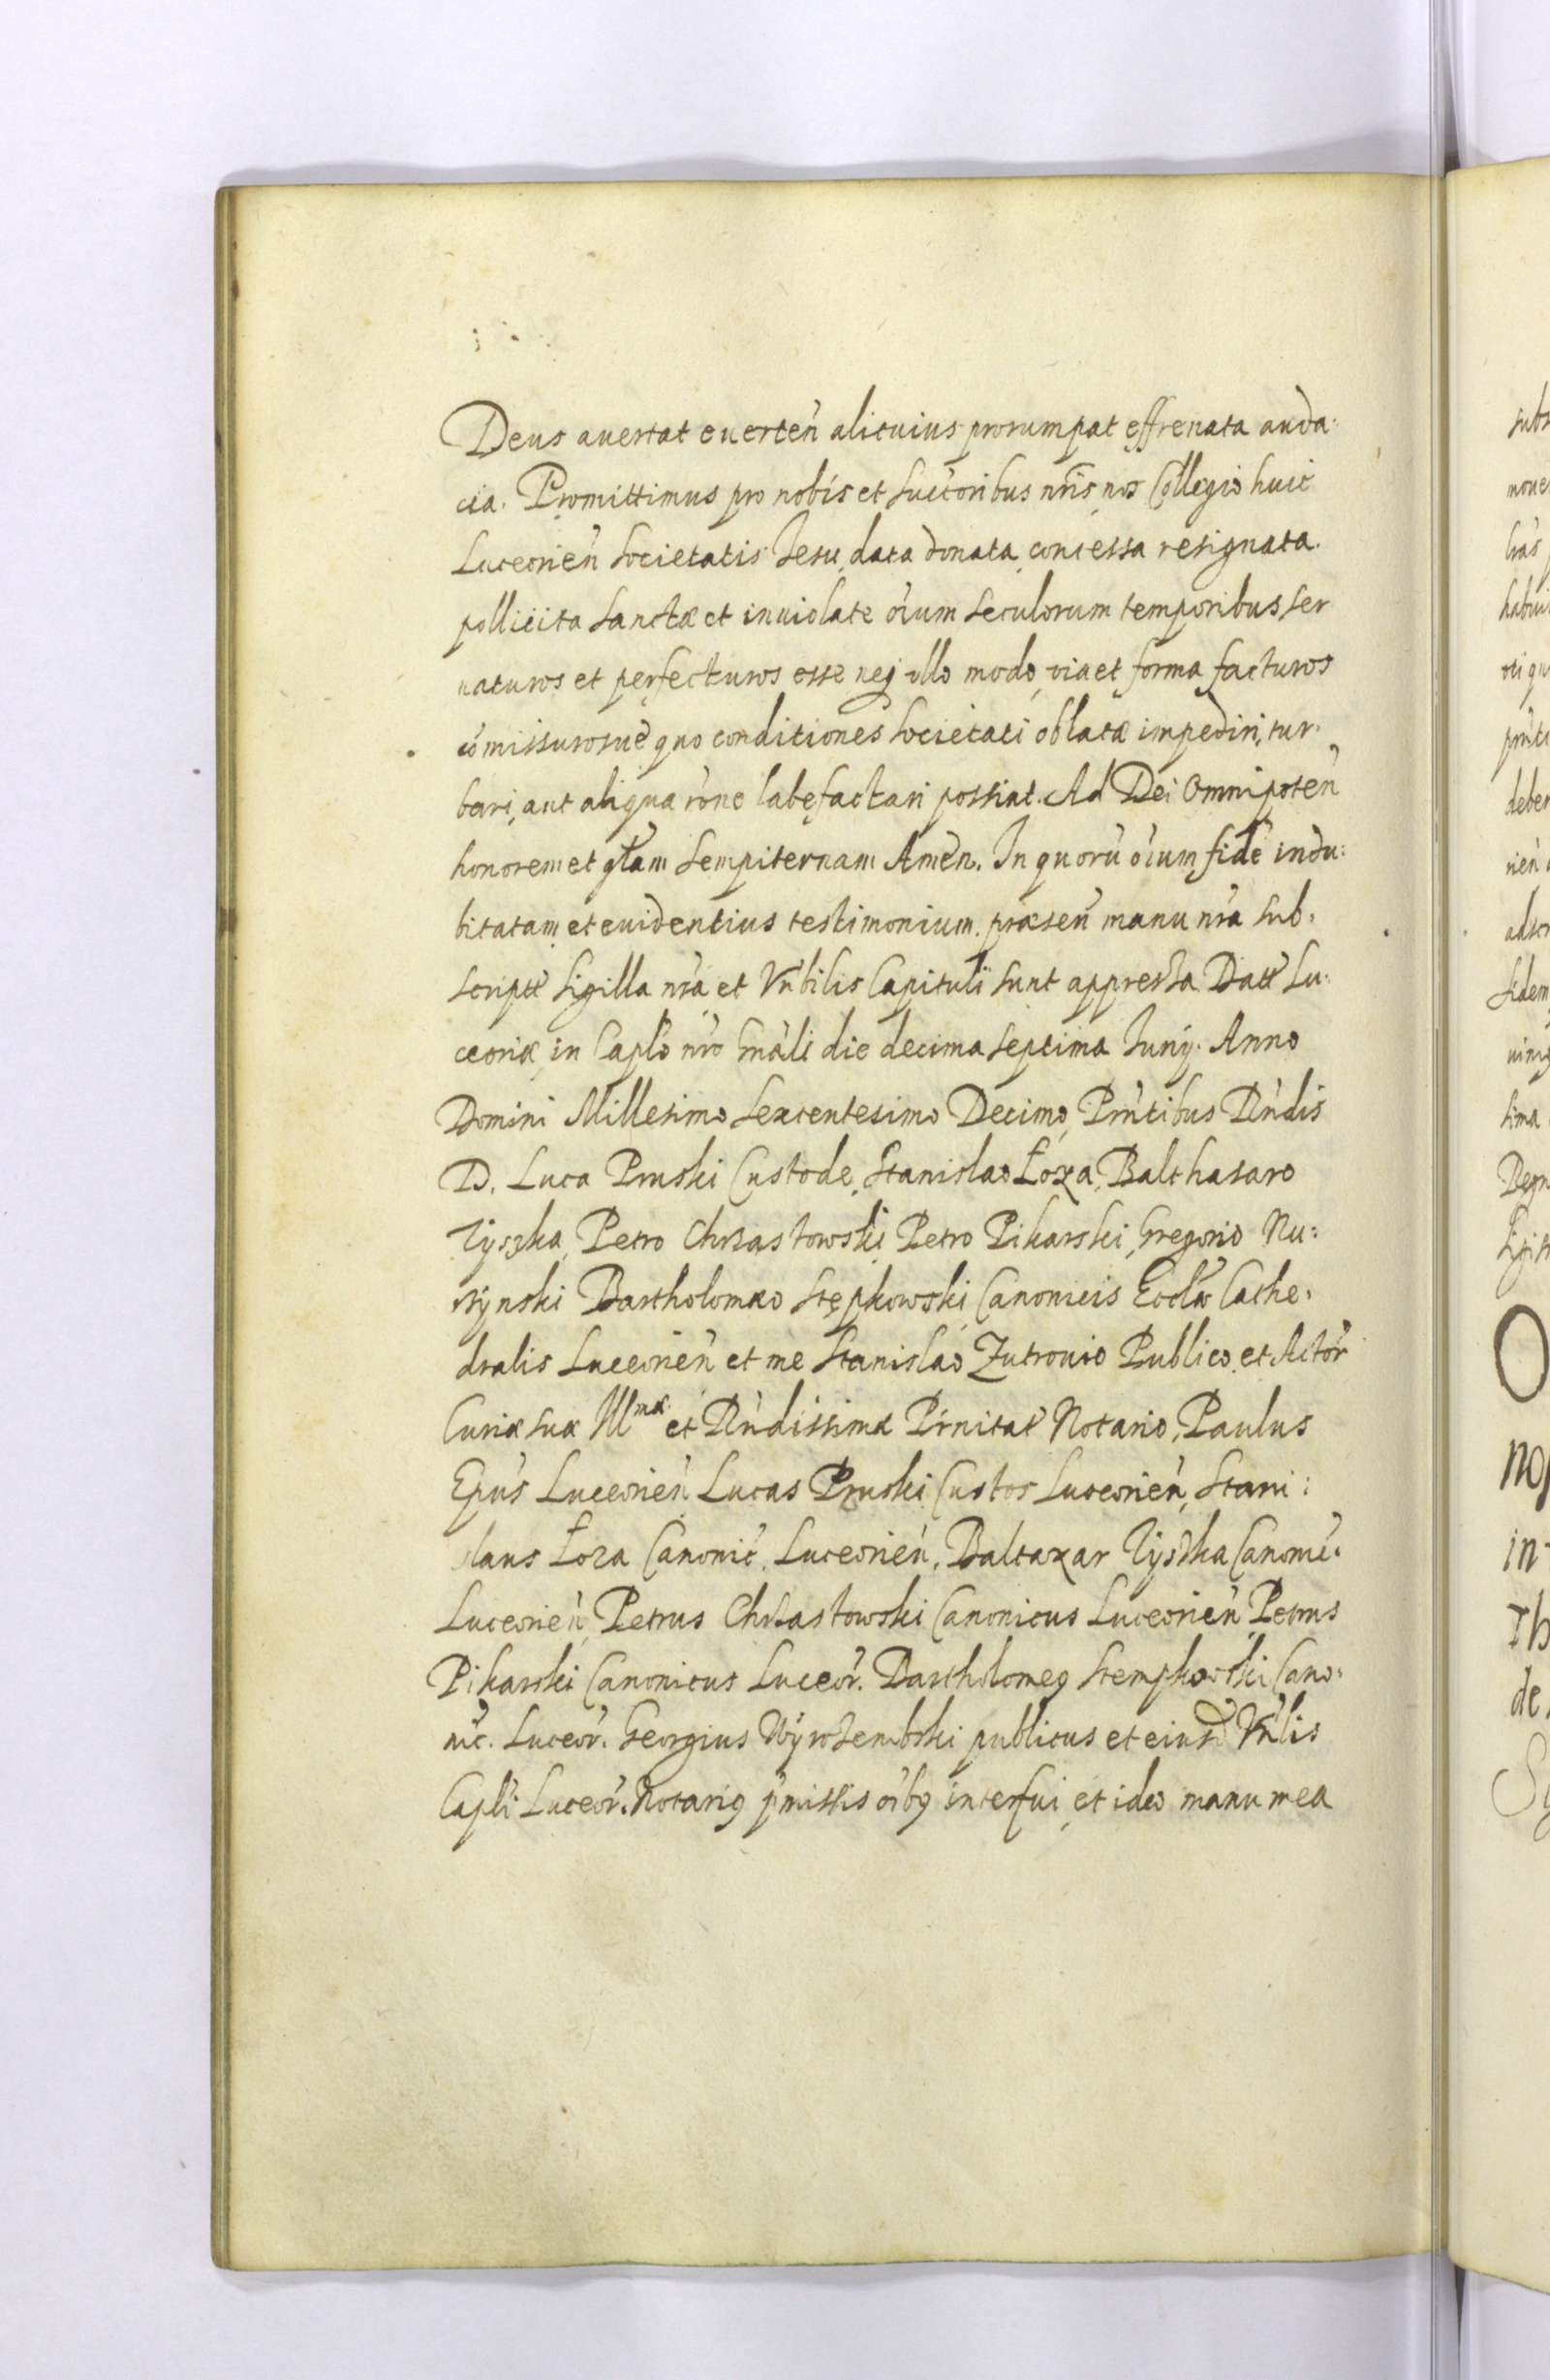 Deus auertat euerteń alicuius prorumpat effrenata auda:
cia. Promittimus pro nobis et succoribus nr̃is, nos Collegio huic
Luceorień Societatis Iesu, data donata, concessa resignata.
pollicita sanctæ et inuiolate oĩum seculorum temporibus ser
uaturos et perfecturos esse neq ullo modo, via et forma facturos
cõmissurosue quo conditiones Societati oblatæ impediri, tur:
bari, aut aliqua rõne labefactari possint. Ad Dei Omnipoteń
honorem et glãm sempiternam Amen. In quorũ oĩum fidẽ indu:
bitatam et euidentius testimonium. præseń manu nr̃a sub:
scriptẽ Sigilla nr̃a et Vñbilis Capituli sunt appressa. Datẽ Lu:
ceoriæ in Capľo nr̃o Gnãli die decima septima Iunij. Anno
Domini Millesimo Sexcentesimo Decimo, Prñtibus Rñdis
D. Luca Pruski Custode, Stanislao Łoza, Balthasaro
Tyszka, Petro Chrzastowski, Petro Pikarski, Gregorio Nu:
rzynski Bartholomæo Stępkowski, Canonicis Eccľæ Cathe:
dralis Luceorień et me Stanislao Zutrouio Publico et Actoŕ
Curiæ suæ Illmæ et Rñdissimæ Pŕnitat̃ Notario, Paulus
Epũs Luceorień Lucas Pruski Custos Luceorień, Stani:
slaus Łoza Canonić. Luceorień. Baltazar Tyszka Canonić.
Luceorień, Petrus Chrzastowski Canonicus Luceorień, Petrus
Pikarski Canonicus Luceoŕ. Bartholomeg Stempkowski Cano:
nić. Luceoŕ. Georgius Wyrozembski publicus et eiusd̃ Vñlis
Capľi Luceoŕ. Notarig p̃missis oĩbg interfui, et ideo manu mea